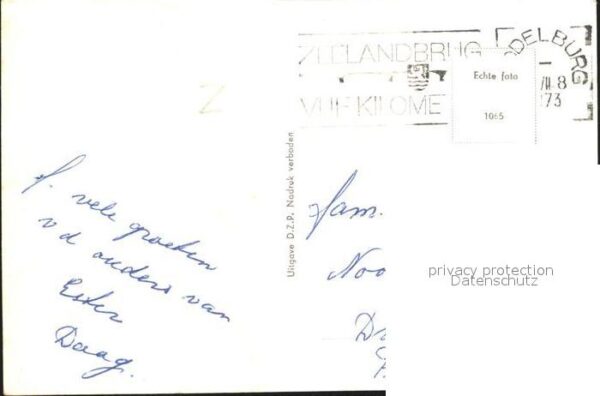 ZEELANDBRUG
VIJF KILOME
DELBURG
VII.8
73
Echte foto
1065
Uitgave D.Z.P. Nadruk verboden
f. vele groeten
v d ouders van
Ester
Daag.
Fam.
Noo
D
privacy protection
Datenschutz
Z